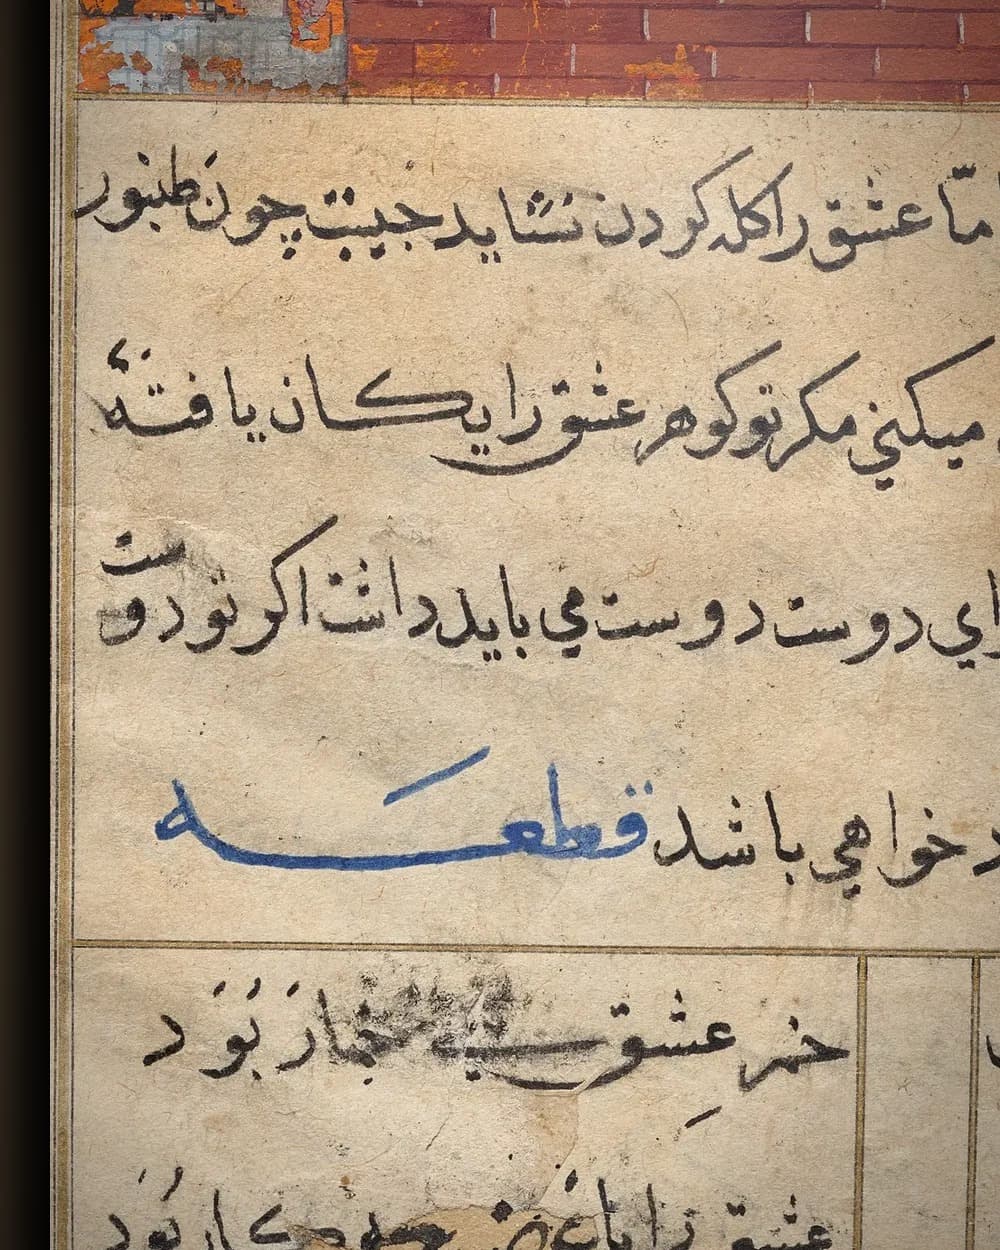 امّا عشق را کله کردن نشاید جیبت چون طنبور
میکنی مکر تو کوهر عشق رایکان یافتهٔ
رای دوست دوست می باید داشت اکر تو دوست
خواهی باشد قطعه
خمرِ عشق بی خمار نبود
عشق را با کار نبود